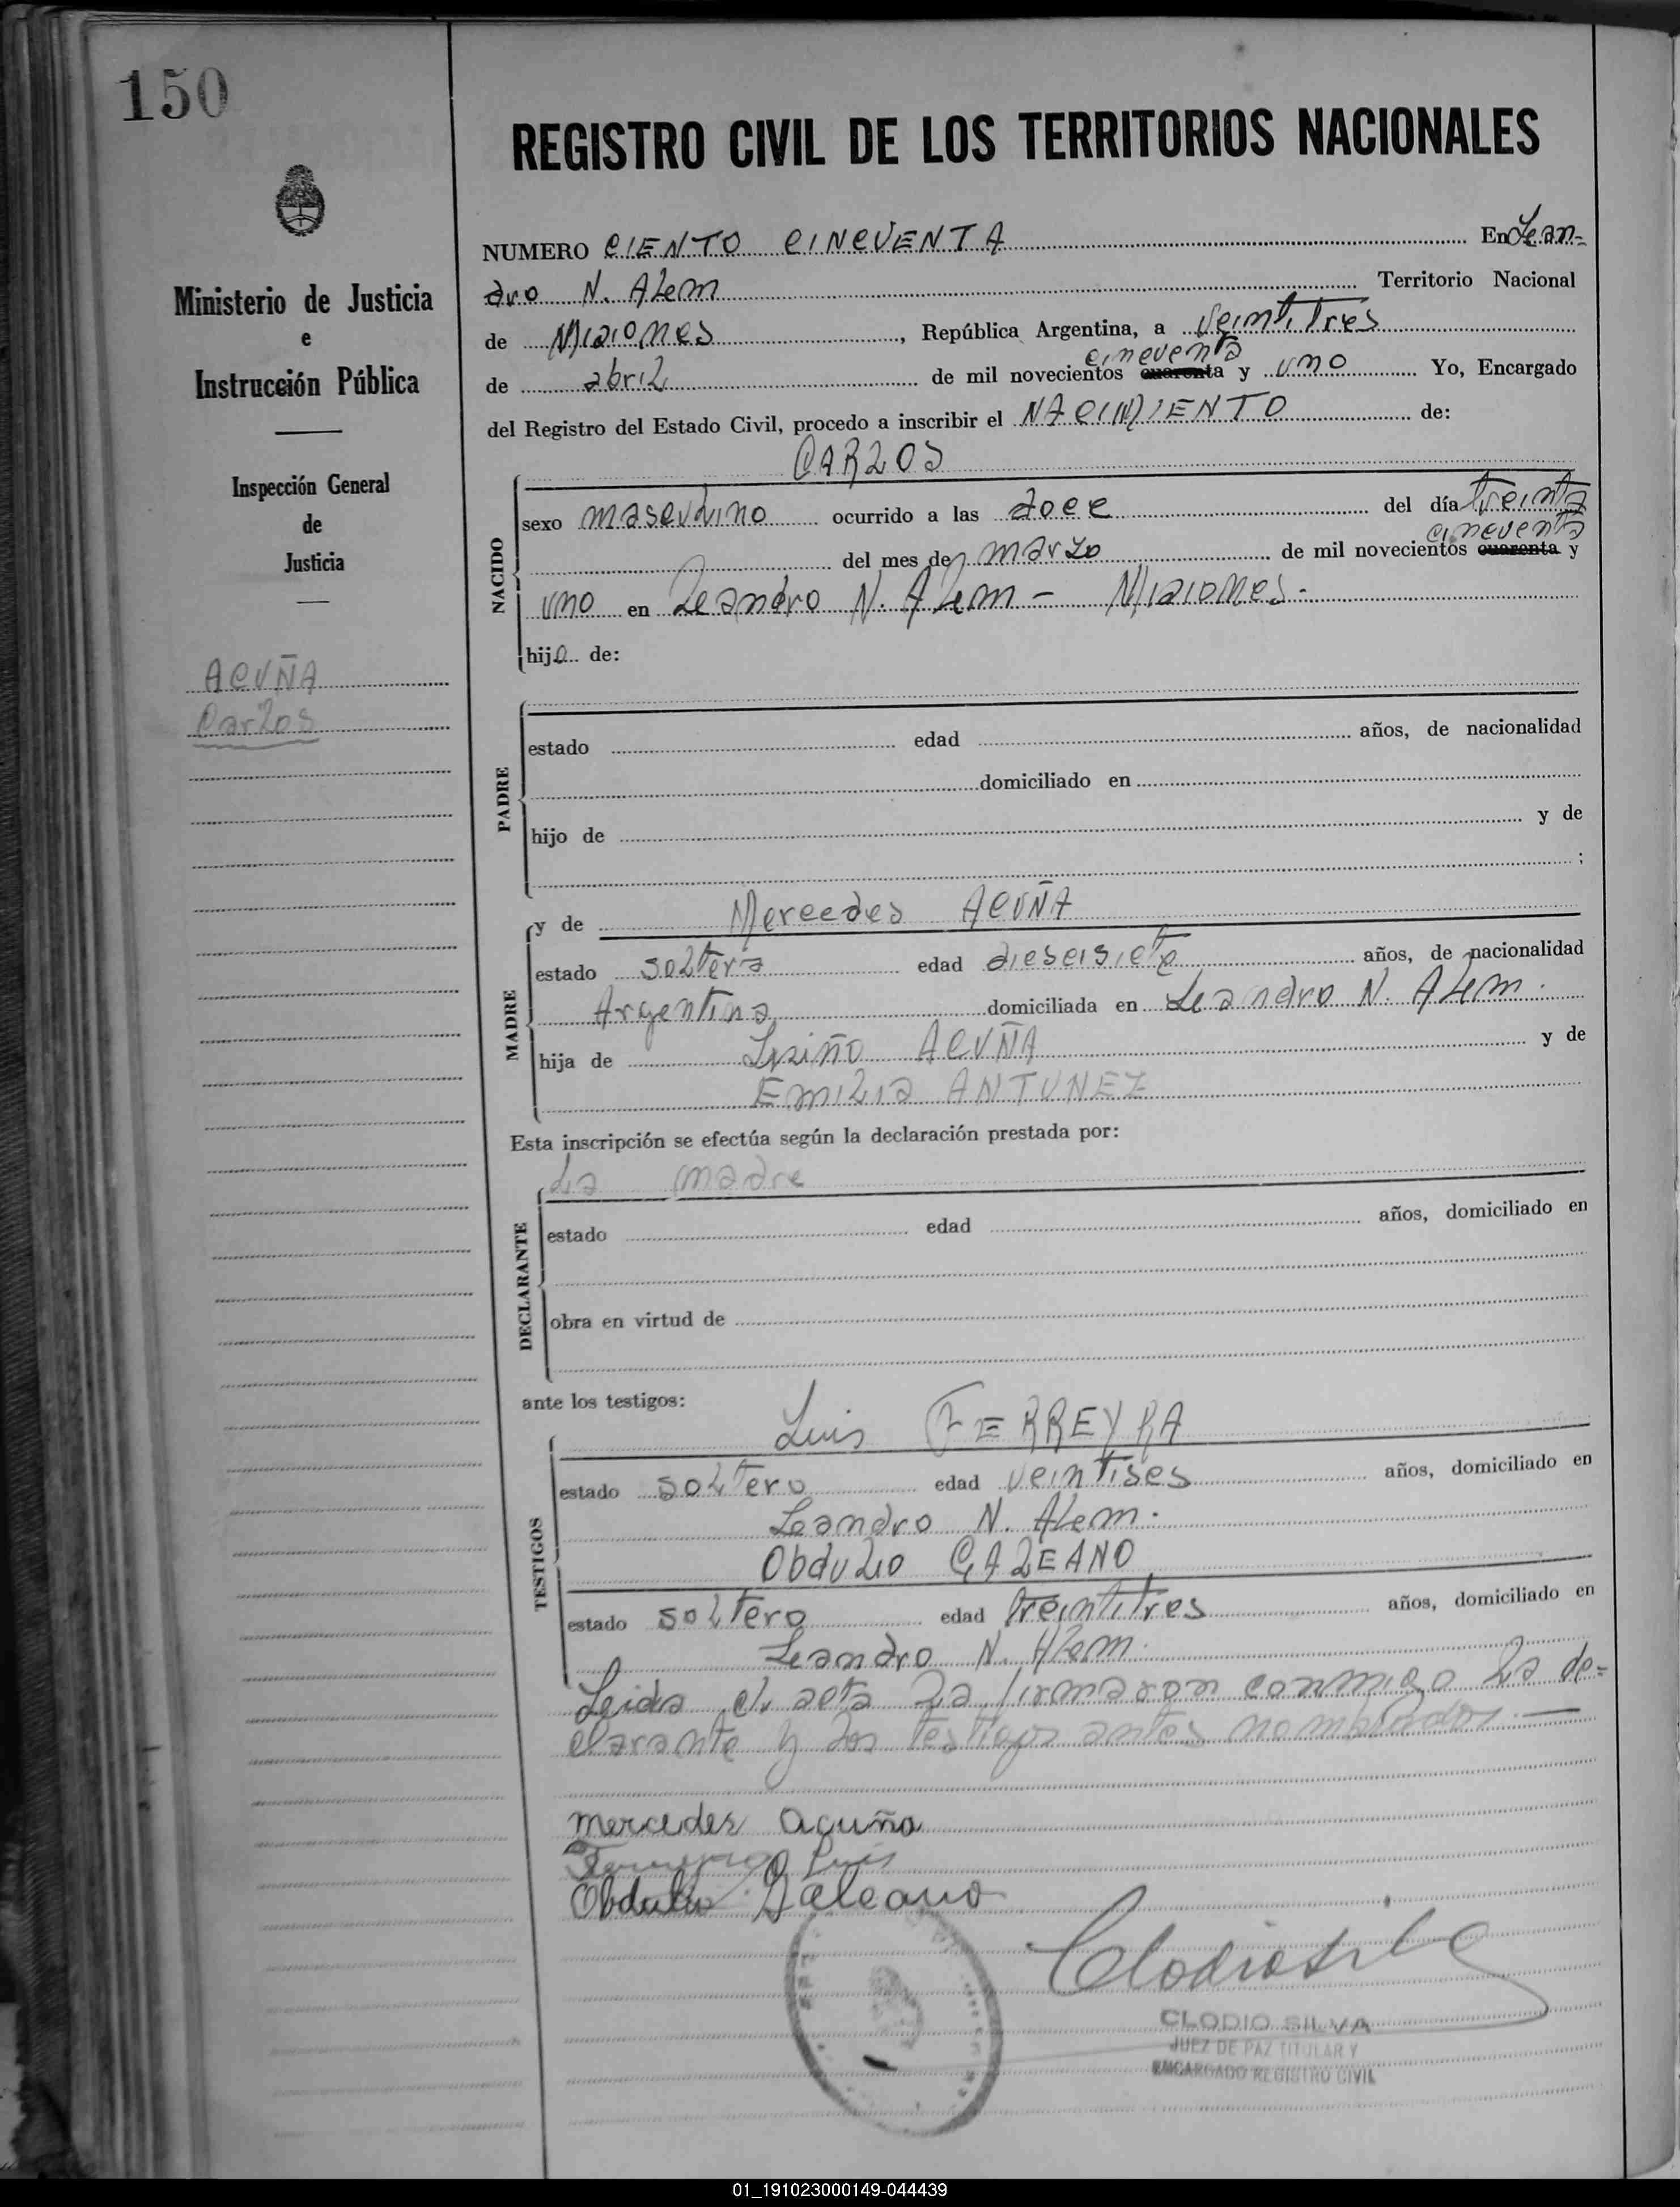 150
REGISTRO CIVIL DE LOS TERRITORIOS NACIONALES
Ministerio de Justicia
e
Instrucción Pública
Inspección General
de
Justicia
ACUÑA
Carlos
NUMERO CIENTO CINCUENTA En Lean=
dro N. Alem Territorio Nacional
de Misiones, República Argentina, a veintitres
cincuenta
de abril de mil novecientos cuarenta y uno Yo, Encargado
del Registro del Estado Civil, procedo a inscribir el NACIMIENTO de:
CARLOS
NACIDO
sexo masculino ocurrido a las doce del día treinta
cincuenta
del mes de marzo de mil novecientos cuarenta y
uno en Leandro N. Alem - Misiones.
hijo de:
PADRE
estado edad años, de nacionalidad
domiciliado en
hijo de y de
;
MADRE
y de Mercedes ACUÑA
estado soltera edad dieseisiete años, de nacionalidad
Argentina domiciliada en Leandro N. Alem.
hija de ACUÑA y de
Emilia ANTUNEZ
Esta inscripción se efectúa según la declaración prestada por:
La madre
DECLARANTE
estado edad años, domiciliado en
obra en virtud de
ante los testigos:
TESTIGOS
Luis FERREYRA
estado soltero edad veintises años, domiciliado en
Leandro N. Alem.
Obdulio GALEANO
estado soltero edad treintitres años, domiciliado en
Leandro N. Alem.
Leida el acta la firmaron conmigo la de=
clarante y los testigos antes nombrados. —
mercedes acuña
Luis
Obdulio Galeano
Clodio Silva
CLODIO SILVA
JUEZ DE PAZ TITULAR Y
ENCARGADO REGISTRO CIVIL
01_191023000149-044439